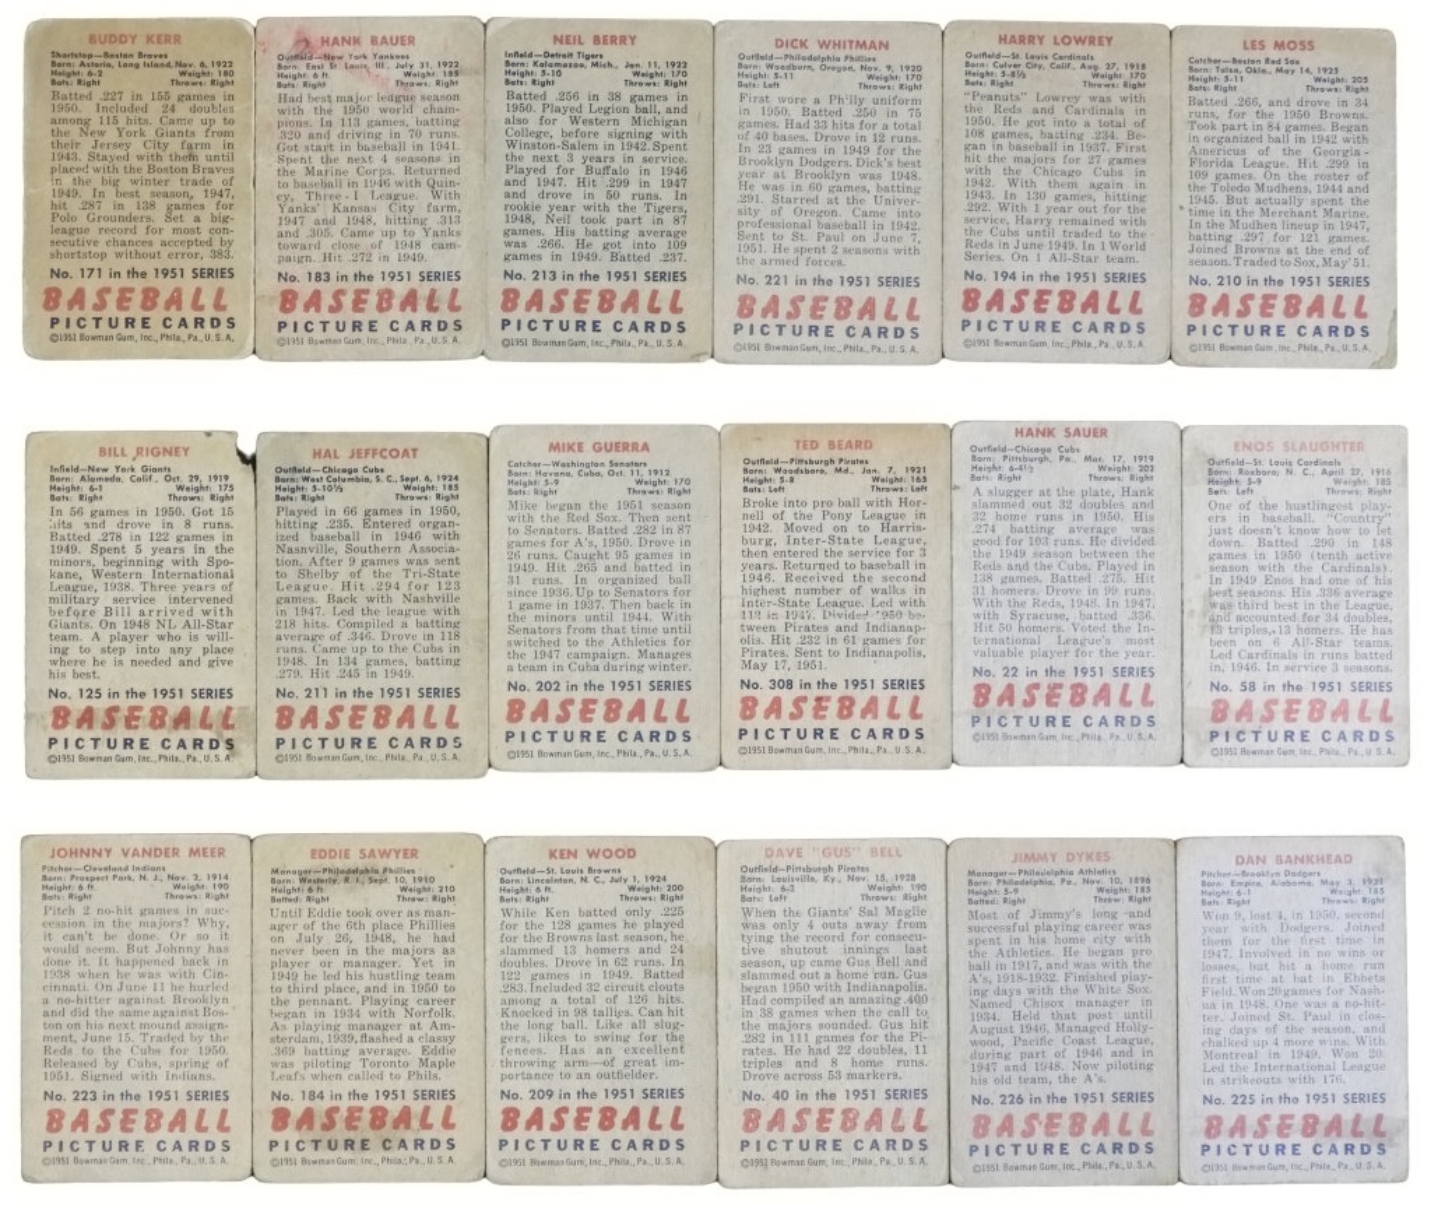 BUDDY KERR
Shortstop—Boston Braves
Born: Astoria, Long Island, Nov. 6, 1922
Height: 6-2 Weight: 180
Bats: Right Throws: Right
Batted .227 in 155 games in
1950. Included 24 doubles
among 115 hits. Came up to
the New York Giants from
their Jersey City farm in
1943. Stayed with them until
placed with the Boston Braves
in the big winter trade of
1949. In best season, 1947,
hit .287 in 138 games for
Polo Grounders. Set a big-
league record for most con-
secutive chances accepted by
shortstop without error, 383.
No. 171 in the 1951 SERIES
BASEBALL
PICTURE CARDS
©1951 Bowman Gum, Inc., Phila., Pa., U. S. A.
HANK BAUER
Outfield—New York Yankees
Born: East St Louis, Ill., July 31, 1922
Height: 6 ft. Weight: 185
Bats: Right Throws: Right
Had best major league season
with the 1950 world cham-
pions. In 113 games, batting
.320 and driving in 70 runs.
Got start in baseball in 1941.
Spent the next 4 seasons in
the Marine Corps. Returned
to baseball in 1946 with Quin-
cy, Three-I League. With
Yanks' Kansas City farm,
1947 and 1948, hitting .313
and .305. Came up to Yanks
toward close of 1948 cam-
paign. Hit .272 in 1949.
No. 183 in the 1951 SERIES
BASEBALL
PICTURE CARDS
©1951 Bowman Gum, Inc., Phila., Pa., U. S. A.
NEIL BERRY
Infield—Detroit Tigers
Born: Kalamazoo, Mich., Jan. 11, 1922
Height: 5-10 Weight: 170
Bats: Right Throws: Right
Batted .256 in 38 games in
1950. Played Legion ball, and
also for Western Michigan
College, before signing with
Winston-Salem in 1942. Spent
the next 3 years in service.
Played for Buffalo in 1946
and 1947. Hit .299 in 1947
and drove in 50 runs. In
rookie year with the Tigers,
1948, Neil took part in 87
games. His batting average
was .266. He got into 109
games in 1949. Batted .237.
No. 213 in the 1951 SERIES
BASEBALL
PICTURE CARDS
©1951 Bowman Gum, Inc., Phila., Pa., U. S. A.
DICK WHITMAN
Outfield—Philadelphia Phillies
Born: Woodburn, Oregon, Nov. 9, 1920
Height: 5-11 Weight: 170
Bats: Left Throws: Right
First wore a Philly uniform
in 1950. Batted .250 in 75
games. Had 33 hits for a total
of 40 bases. Drove in 12 runs.
In 23 games in 1949 for the
Brooklyn Dodgers. Dick's best
year at Brooklyn was 1948.
He was in 60 games, batting
.291. Starred at the Univer-
sity of Oregon. Came into
professional baseball in 1942.
Sent to St. Paul on June 7,
1951. He spent 2 seasons with
the armed forces.
No. 221 in the 1951 SERIES
BASEBALL
PICTURE CARDS
©1951 Bowman Gum, Inc., Phila., Pa., U. S. A.
HARRY LOWREY
Outfield—St. Louis Cardinals
Born: Culver City, Calif., Aug. 27, 1918
Height: 5-8½ Weight: 170
Bats: Right Throws: Right
"Peanuts" Lowrey was with
the Reds and Cardinals in
1950. He got into a total of
108 games, batting .234. Be-
gan in baseball in 1937. First
hit the majors for 27 games
with the Chicago Cubs in
1942. With them again in
1943. In 130 games, hitting
.292. With 1 year out for the
service, Harry remained with
the Cubs until traded to the
Reds in June 1949. In 1 World
Series. On 1 All-Star team.
No. 194 in the 1951 SERIES
BASEBALL
PICTURE CARDS
©1951 Bowman Gum, Inc., Phila., Pa., U. S. A.
LES MOSS
Catcher—Boston Red Sox
Born: Tulsa, Okla., May 14, 1925
Height: 5-11 Weight: 205
Bats: Right Throws: Right
Batted .266, and drove in 34
runs, for the 1950 Browns.
Took part in 84 games. Began
in organized ball in 1942 with
Americus of the Georgia-
Florida League. Hit .299 in
109 games. On the roster of
the Toledo Mudhens, 1944 and
1945. But actually spent the
time in the Merchant Marine.
In the Mudhen lineup in 1947,
batting .297 for 121 games.
Joined Browns at the end of
season. Traded to Sox, May '51.
No. 210 in the 1951 SERIES
BASEBALL
PICTURE CARDS
©1951 Bowman Gum, Inc., Phila., Pa., U. S. A.
BILL RIGNEY
Infield—New York Giants
Born: Alameda, Calif., Oct. 29, 1919
Height: 6-1 Weight: 175
Bats: Right Throws: Right
In 56 games in 1950. Got 15
hits and drove in 8 runs.
Batted .278 in 122 games in
1949. Spent 5 years in the
minors, beginning with Spo-
kane, Western International
League, 1938. Three years of
military service intervened
before Bill arrived with
Giants. On 1948 NL All-Star
team. A player who is will-
ing to step into any place
where he is needed and give
his best.
No. 125 in the 1951 SERIES
BASEBALL
PICTURE CARDS
©1951 Bowman Gum, Inc., Phila., Pa., U. S. A.
HAL JEFFCOAT
Outfield—Chicago Cubs
Born: West Columbia, S. C., Sept. 6, 1924
Height: 5-10½ Weight: 185
Bats: Right Throws: Right
Played in 66 games in 1950,
hitting .235. Entered organ-
ized baseball in 1946 with
Nashville, Southern Associa-
tion. After 9 games was sent
to Shelby of the Tri-State
League. Hit .294 for 123
games. Back with Nashville
in 1947. Led the league with
218 hits. Compiled a batting
average of .346. Drove in 118
runs. Came up to the Cubs in
1948. In 134 games, batting
.279. Hit .245 in 1949.
No. 211 in the 1951 SERIES
BASEBALL
PICTURE CARDS
©1951 Bowman Gum, Inc., Phila., Pa., U. S. A.
MIKE GUERRA
Catcher—Washington Senators
Born: Havana, Cuba, Oct. 11, 1912
Height: 5-9 Weight: 170
Bats: Right Throws: Right
Mike began the 1951 season
with the Red Sox. Then sent
to Senators. Batted .282 in 87
games for A's, 1950. Drove in
26 runs. Caught 95 games in
1949. Hit .265 and batted in
31 runs. In organized ball
since 1936. Up to Senators for
1 game in 1937. Then back in
the minors until 1944. With
Senators from that time until
switched to the Athletics for
the 1947 campaign. Manages
a team in Cuba during winter.
No. 202 in the 1951 SERIES
BASEBALL
PICTURE CARDS
©1951 Bowman Gum, Inc., Phila., Pa., U. S. A.
TED BEARD
Outfield—Pittsburgh Pirates
Born: Woodsboro, Md., Jan. 7, 1921
Height: 5-8 Weight: 165
Bats: Left Throws: Left
Broke into pro ball with Hor-
nell of the Pony League in
1942. Moved on to Harris-
burg, Inter-State League,
then entered the service for 3
years. Returned to baseball in
1946. Received the second
highest number of walks in
Inter-State League. Led with
in 1947. Divided 1950 be-
tween Pirates and Indianap-
olis. Hit .232 in 61 games for
Pirates. Sent to Indianapolis,
May 17, 1951.
No. 308 in the 1951 SERIES
BASEBALL
PICTURE CARDS
©1951 Bowman Gum, Inc., Phila., Pa., U. S. A.
HANK SAUER
Outfield—Chicago Cubs
Born: Pittsburgh, Pa., Mar. 17, 1919
Height: 6-4½ Weight: 202
Bats: Right Throws: Right
A slugger at the plate, Hank
slammed out 32 doubles and
32 home runs in 1950. His
.274 batting average was
good for 103 runs. He divided
the 1949 season between the
Reds and the Cubs. Played in
138 games. Batted .275. Hit
31 homers. Drove in 99 runs.
With the Reds, 1948. In 1947,
with Syracuse, batted .336.
Hit 50 homers. Voted the In-
ternational League's most
valuable player for the year.
No. 22 in the 1951 SERIES
BASEBALL
PICTURE CARDS
©1951 Bowman Gum, Inc., Phila., Pa., U. S. A.
ENOS SLAUGHTER
Outfield—St. Louis Cardinals
Born: Roxboro, N. C., April 27, 1916
Height: 5-9 Weight: 185
Bats: Left Throws: Right
One of the hustlingest play-
ers in baseball. "Country"
just doesn't know how to let
down. Batted .290 in 148
games in 1950 (tenth active
season with the Cardinals).
In 1949 Enos had one of his
best seasons. His .336 average
was third best in the League,
and accounted for 34 doubles,
13 triples, 13 homers. He has
been on 6 All-Star teams.
Led Cardinals in runs batted
in, 1946. In service 3 seasons.
No. 58 in the 1951 SERIES
BASEBALL
PICTURE CARDS
©1951 Bowman Gum, Inc., Phila., Pa., U. S. A.
JOHNNY VANDER MEER
Pitcher—Cleveland Indians
Born: Prospect Park, N. J., Nov. 2, 1914
Height: 6 ft. Weight: 190
Bats: Right Throws: Left
Pitch 2 no-hit games in suc-
cession in the majors? Why,
it can't be done. Or so it
would seem. But Johnny has
done it. It happened back in
1938 when he was with Cin-
cinnati. On June 11 he hurled
a no-hitter against Brooklyn
and did the same against Bos-
ton on his next mound assign-
ment, June 15. Traded by the
Reds to the Cubs for 1950.
Released by Cubs, spring of
1951. Signed with Indians.
No. 223 in the 1951 SERIES
BASEBALL
PICTURE CARDS
©1951 Bowman Gum, Inc., Phila., Pa., U. S. A.
EDDIE SAWYER
Manager—Philadelphia Phillies
Born: Westerly, R. I., Sept. 10, 1910
Height: 6 ft. Weight: 210
Batted: Right Threw: Right
Until Eddie took over as man-
ager of the 6th place Phillies
on July 26, 1948, he had
never been in the majors as
player or manager. Yet in
1949 he led his hustling team
to third place, and in 1950 to
the pennant. Playing career
began in 1934 with Norfolk.
As playing manager at Am-
sterdam, 1939, flashed a classy
.369 batting average. Eddie
was piloting Toronto Maple
Leafs when called to Phils.
No. 184 in the 1951 SERIES
BASEBALL
PICTURE CARDS
©1951 Bowman Gum, Inc., Phila., Pa., U. S. A.
KEN WOOD
Outfield—St. Louis Browns
Born: Lincolnton, N. C., July 1, 1924
Height: 6 ft. Weight: 200
Bats: Right Throws: Right
While Ken batted only .225
for the 128 games he played
for the Browns last season, he
slammed 13 homers and 24
doubles. Drove in 62 runs. In
122 games in 1949. Batted
.283. Included 32 circuit clouts
among a total of 126 hits.
Knocked in 98 tallies. Can hit
the long ball. Like all slug-
gers, likes to swing for the
fences. Has an excellent
throwing arm—of great im-
portance to an outfielder.
No. 209 in the 1951 SERIES
BASEBALL
PICTURE CARDS
©1951 Bowman Gum, Inc., Phila., Pa., U. S. A.
DAVE "GUS" BELL
Outfield—Pittsburgh Pirates
Born: Louisville, Ky., Nov. 15, 1928
Height: 6-2 Weight: 190
Bats: Left Throws: Right
When the Giants' Sal Maglie
was only 4 outs away from
tying the record for consecu-
tive shutout innings last
season, up came Gus Bell and
slammed out a home run. Gus
began 1950 with Indianapolis.
Had compiled an amazing .400
in 38 games when the call to
the majors sounded. Gus hit
.282 in 111 games for the Pi-
rates. He had 22 doubles, 11
triples and 8 home runs.
Drove across 53 markers.
No. 40 in the 1951 SERIES
BASEBALL
PICTURE CARDS
©1951 Bowman Gum, Inc., Phila., Pa., U. S. A.
JIMMY DYKES
Manager—Philadelphia Athletics
Born: Philadelphia, Pa., Nov. 10, 1896
Height: 5-9 Weight: 185
Batted: Right Threw: Right
Most of Jimmy's long and
successful playing career was
spent in his home city with
the Athletics. He began pro
ball in 1917, and was with the
A's, 1918-1932. Finished play-
ing days with the White Sox.
Named Chisox manager in
1934. Held that post until
August 1946. Managed Holly-
wood, Pacific Coast League,
during part of 1946 and in
1947 and 1948. Now piloting
his old team, the A's.
No. 226 in the 1951 SERIES
BASEBALL
PICTURE CARDS
©1951 Bowman Gum, Inc., Phila., Pa., U. S. A.
DAN BANKHEAD
Pitcher—Brooklyn Dodgers
Born: Empire, Alabama, May 3, 1921
Height: 6-1 Weight: 185
Bats: Right Throws: Right
Won 9, lost 4, in 1950, second
year with Dodgers. Joined
them for the first time in
1947. Involved in no wins or
losses, but hit a home run
first time at bat in Ebbets
Field. Won 20 games for Nash-
ua in 1948. One was a no-hit-
ter. Joined St. Paul in clos-
ing days of the season, and
chalked up 4 more wins. With
Montreal in 1949. Won 20.
Led the International League
in strikeouts with 176.
No. 225 in the 1951 SERIES
BASEBALL
PICTURE CARDS
©1951 Bowman Gum, Inc., Phila., Pa., U. S. A.